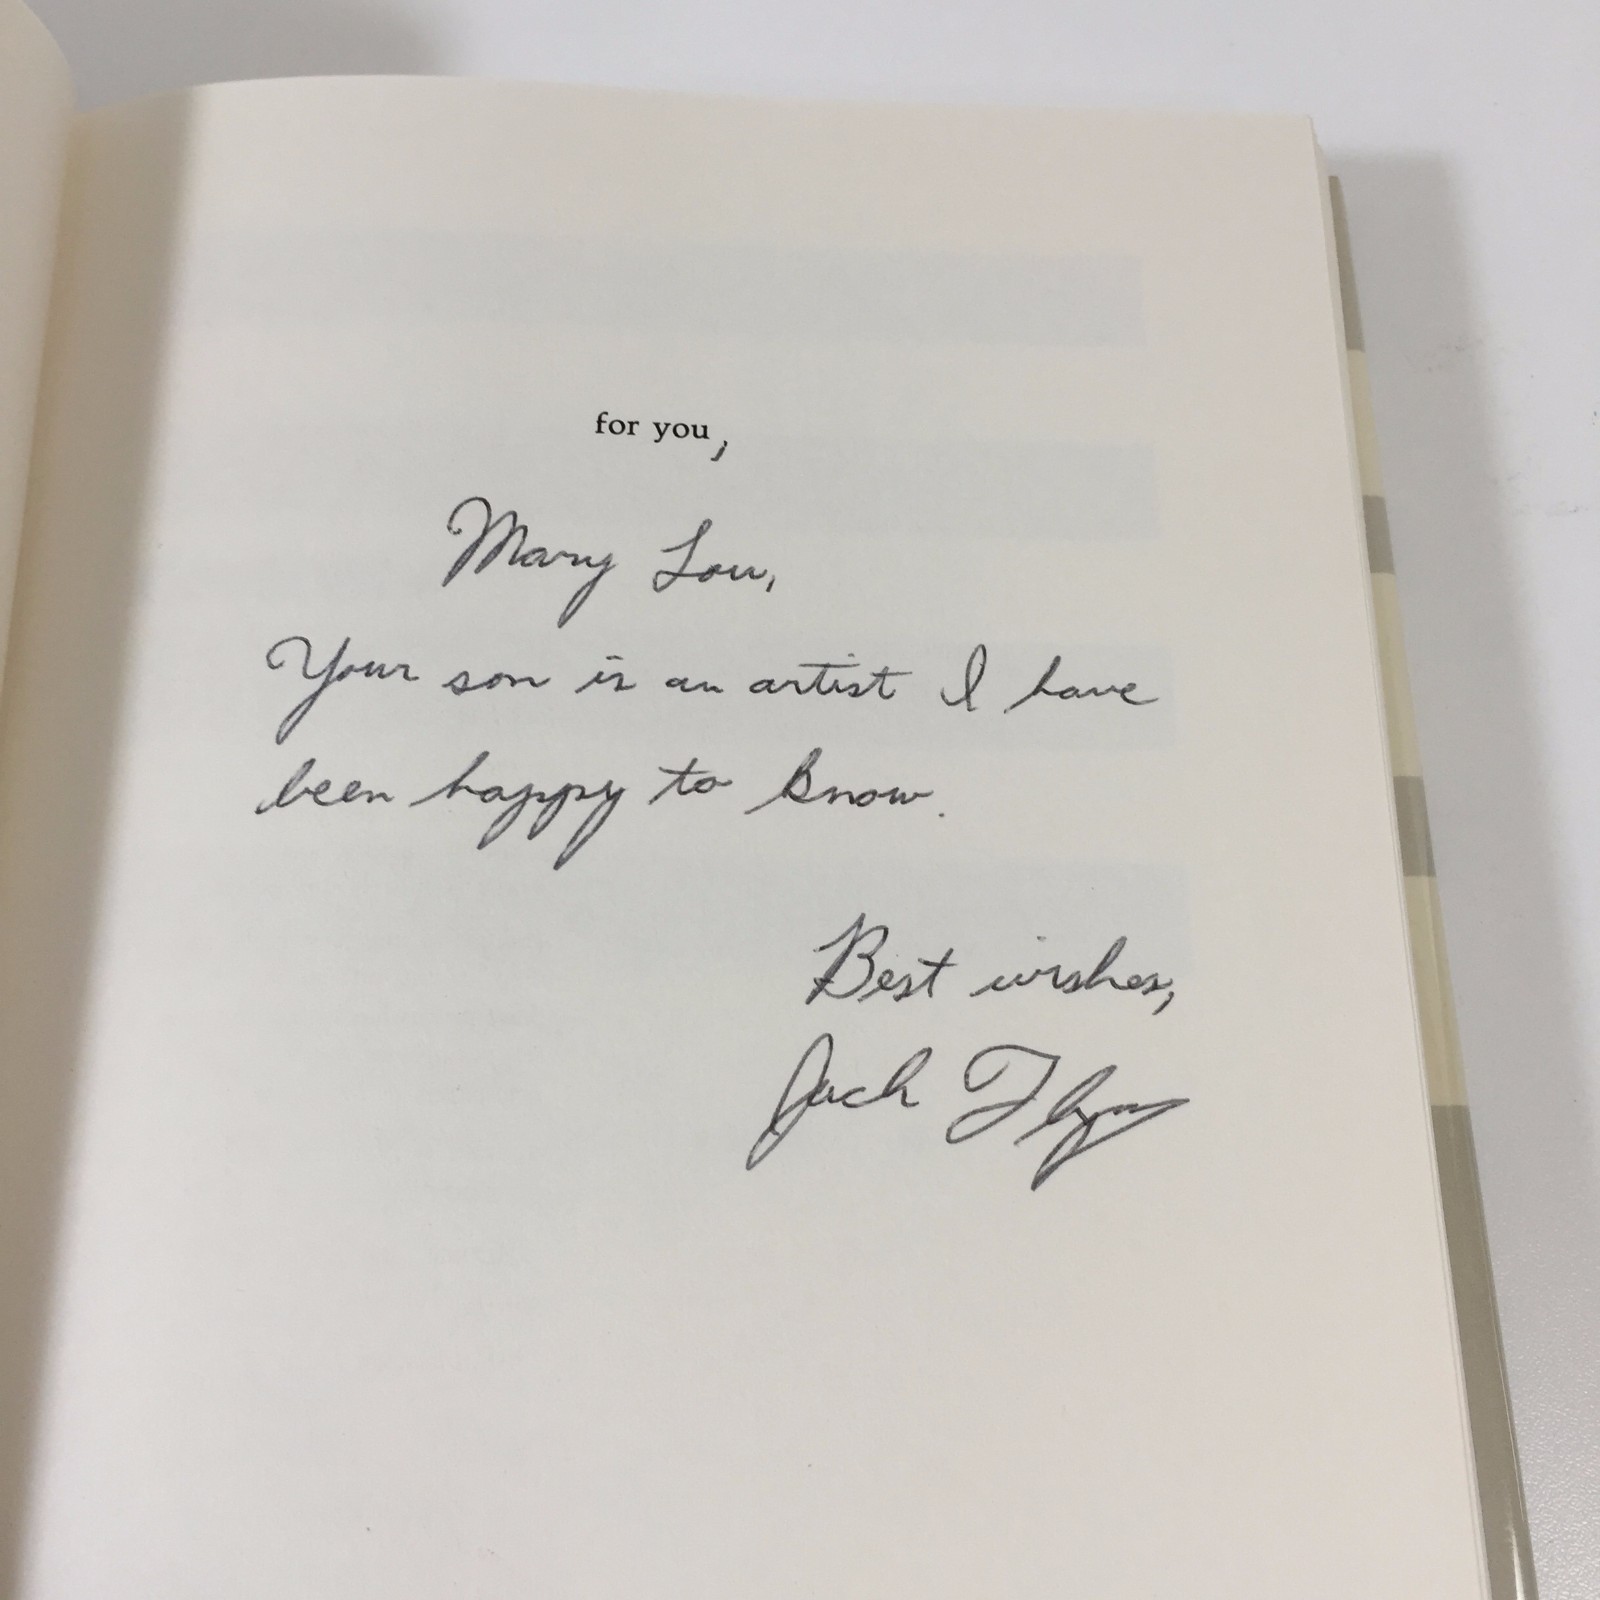 for you,
Mary Lou,
Your son is an artist I have
been happy to know.
Best wishes,
Jack Flynn